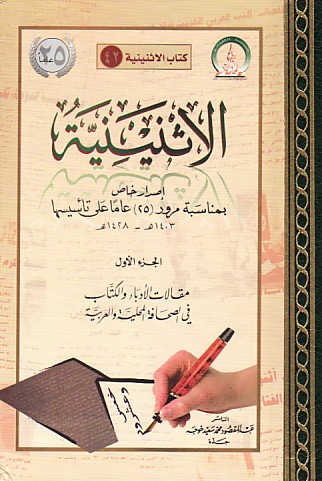 ٢٥ عاماً
كتاب الاثنينية ٤٢
الاثنينيّة
إصدار خاص
بمناسبة مرور (٢٥) عامًا على تأسيسها
١٤٠٣هـ - ١٤٢٨هـ
الجزء الأول
مقالات الأدباء والكتّاب
في الصحافة المحلية والعربية
الناشر
عبد المقصود محمد سعيد خوجه
جدة